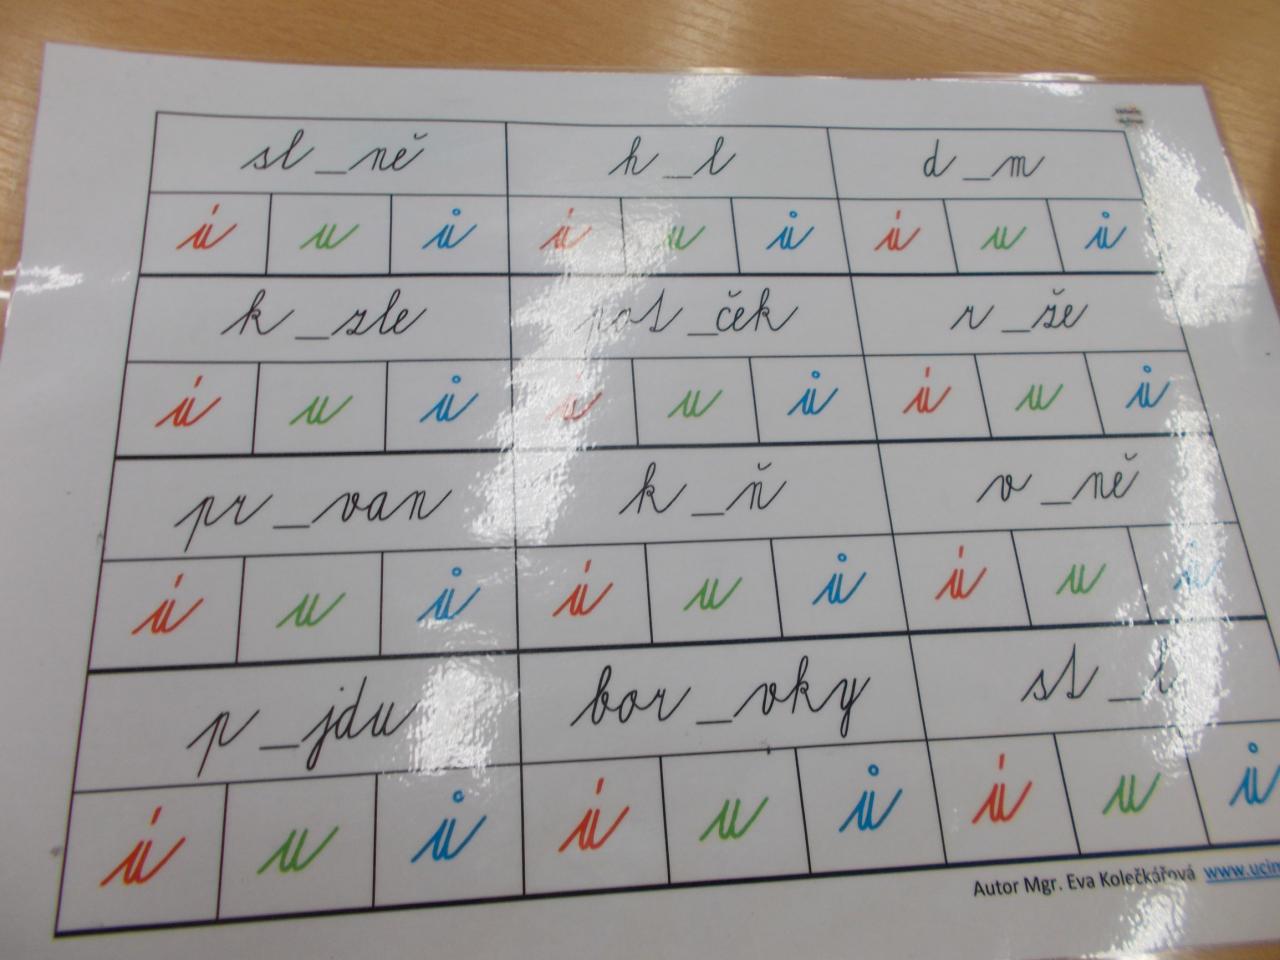 sl_ně h_l d_m
ú u ů ú u ů ú u ů
k_zle pot_ček r_že
ú u ů ú u ů ú u ů
pr_van k_ň v_ně
ú u ů ú u ů ú u ů
p_jdu bor_vky st_l
ú u ů ú u ů ú u ů
Autor Mgr. Eva Kolečkářová www.ucim